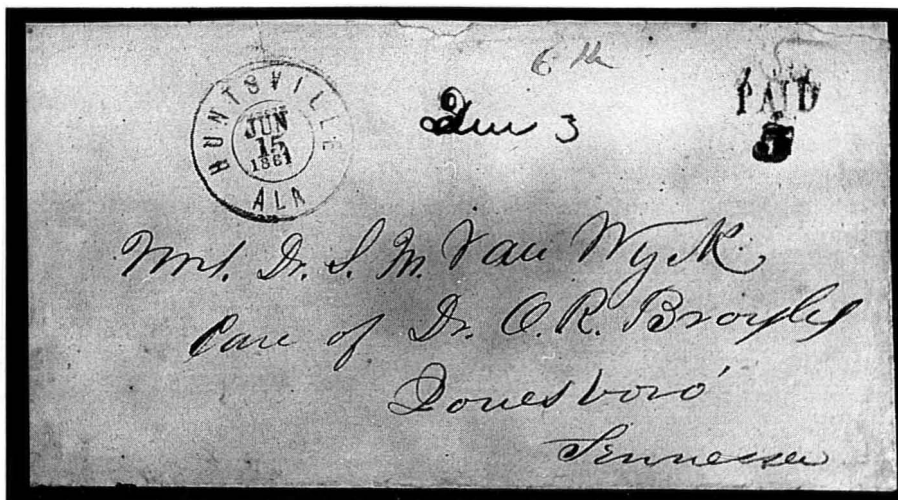 6th
HUNTSVILLE
JUN
15
1861
ALA
Due 3
PAID
5
Mrs. Dr. S. M. Van Wyck.
Care of Dr. O. R. Broyles
Jonesboro'
Tennessee